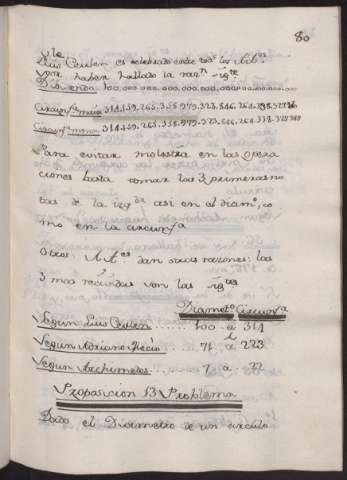 80
Luis Ceulen es celebrado entre todos los Aut.s
por haber hallado la raz.n sig.te
100.000.000.000.000.000.000.000.000
Circunf.a maior 314.159.265.358.979.323.846.264.338.327
Circunf.a menor 314.159.265.358.979.323.846.264.338.327
Para evitar molestia en las opera
ciones basta tomar las 3 primeras no
tas de la izq.da asi en el diam.o, co
mo en la circunf.a
Otros AA.es dan otras razones: las
3 mas recividas son las sig.tes
Diamet.o Circunf.a
Segun Luis Ceulen 100 a 314
Segun Adriano Mecio 71 a 223
Segun Archimedes 7 a 22
Proposicion 13 Problema
Dado el Diametro de un circulo